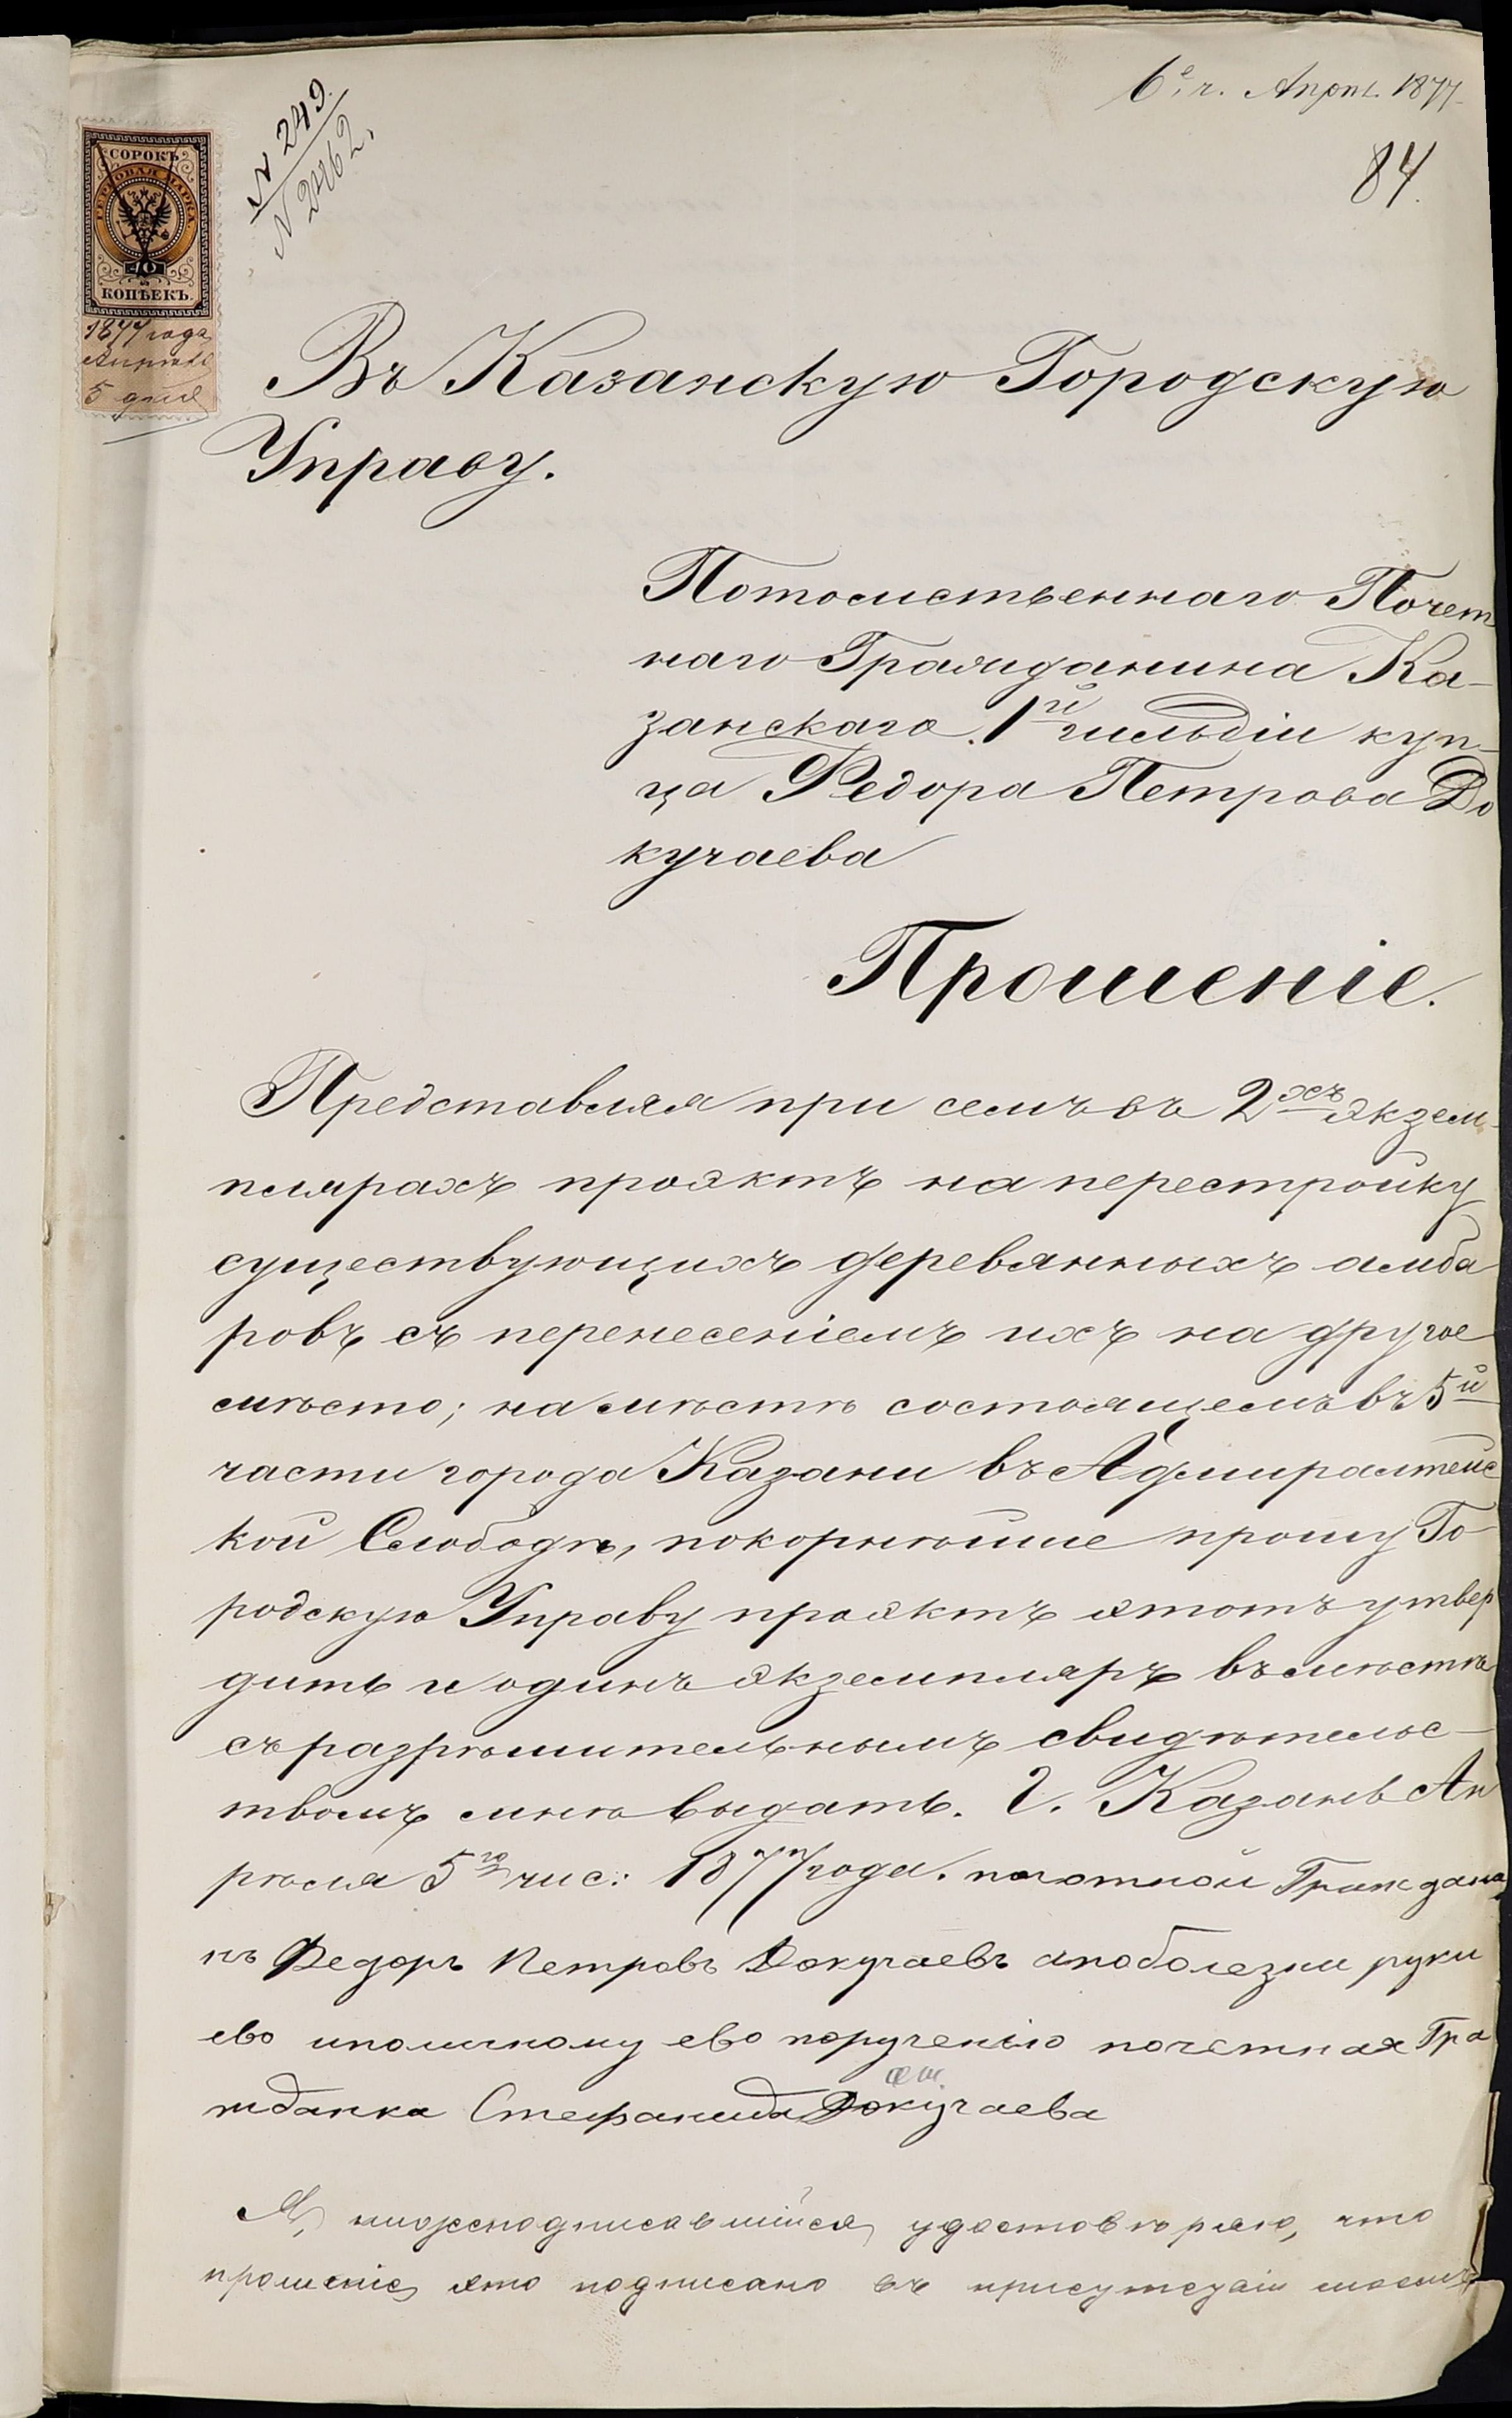 6е. ч. Апрѣл. 1877
84.
№ 249.
№ 2462.
СОРОКЪ
ГЕРБОВАЯ МАРКА
40
КОПѢЕКЪ.
1877 года
Апрѣля
5 дня
Въ Казанскую Городскую
Управу.
Потомственнаго Почет
наго Гражданина Ка-
занскаго 1й гильдіи куп-
ца Федора Петрова До
кучаева
Прошеніе.
Представляя при семъ въ 2хъ экзем-
плярахъ проэктъ на перестройку
существующихъ деревянныхъ амба
ровъ съ перенесеніемъ ихъ на другое
мѣсто; на мѣстѣ состоящемъ въ 5й
части города Казани въ Адмиралтейс
кой Слободѣ, покорнѣйше прошу Го-
родскую Управу проэктъ этотъ утвер
дить и одинъ экземпляръ вмѣстѣ
съ разрѣшительнымъ свидѣтельс-
твомъ мнѣ выдать. Г. Казань Ап
рѣля 5го чис: 1877 года. почотной Граждани
нъ Федоръ Петровъ Докучаевъ апоболезни руки
ево иполичному ево порученію почетная Гра
жданка Стефанида Докучаева
Я, нижеподписавшійся, удостовѣряю, что
прошеніе это подписано въ присутствіи моемъ